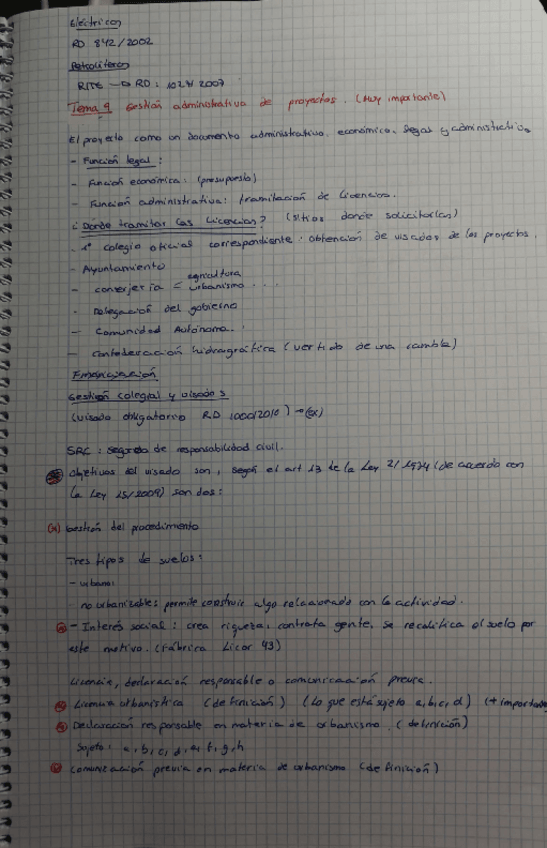 Eléctricos
RD 842/2002
Petrolíferos
RITE → RD: 1027/2007
Tema 9 Gestión administrativa de proyectos. (Muy importante)
El proyecto como un documento administrativo, económico, legal y administrativo
- Función legal:
- Función económica: (presupuesto)
- Función administrativa: tramitación de licencias.
¿Donde tramitar las licencias? (sitios donde solicitarlas)
- 1º colegio oficial correspondiente: obtención de visados de los proyectos.
- Ayuntamiento
agricultura
- conserjería = urbanismo ...
- Delegación del gobierno
- Comunidad Autónoma..
- Confederación hidrográfica (vertido de una
Financiación
Gestión colegial y visados
(visado obligatorio RD 1000/2010) →
SRC: seguro de responsabilidad civil.
objetivos del visado son, según el art 13 de la Ley 2/1974 (de acuerdo con
la Ley 25/2009) son dos:
Gestión del procedimiento
Tres tipos de suelos:
- urbano:
no urbanizables: permite construir algo relacionado con la actividad.
- Interés social: crea riqueza, contrata gente, se recalifica el suelo por
este motivo. (fábrica Licor 43)
Licencia, declaración responsable o comunicación previa.
Licencia urbanística (definición) (Lo que está sujeto a, b, c, d) (+ importante
Declaración responsable en materia de urbanismo (definición)
Sujeto: a, b, c, d, e, f, g, h
comunicación previa en materia de urbanismo (definición)